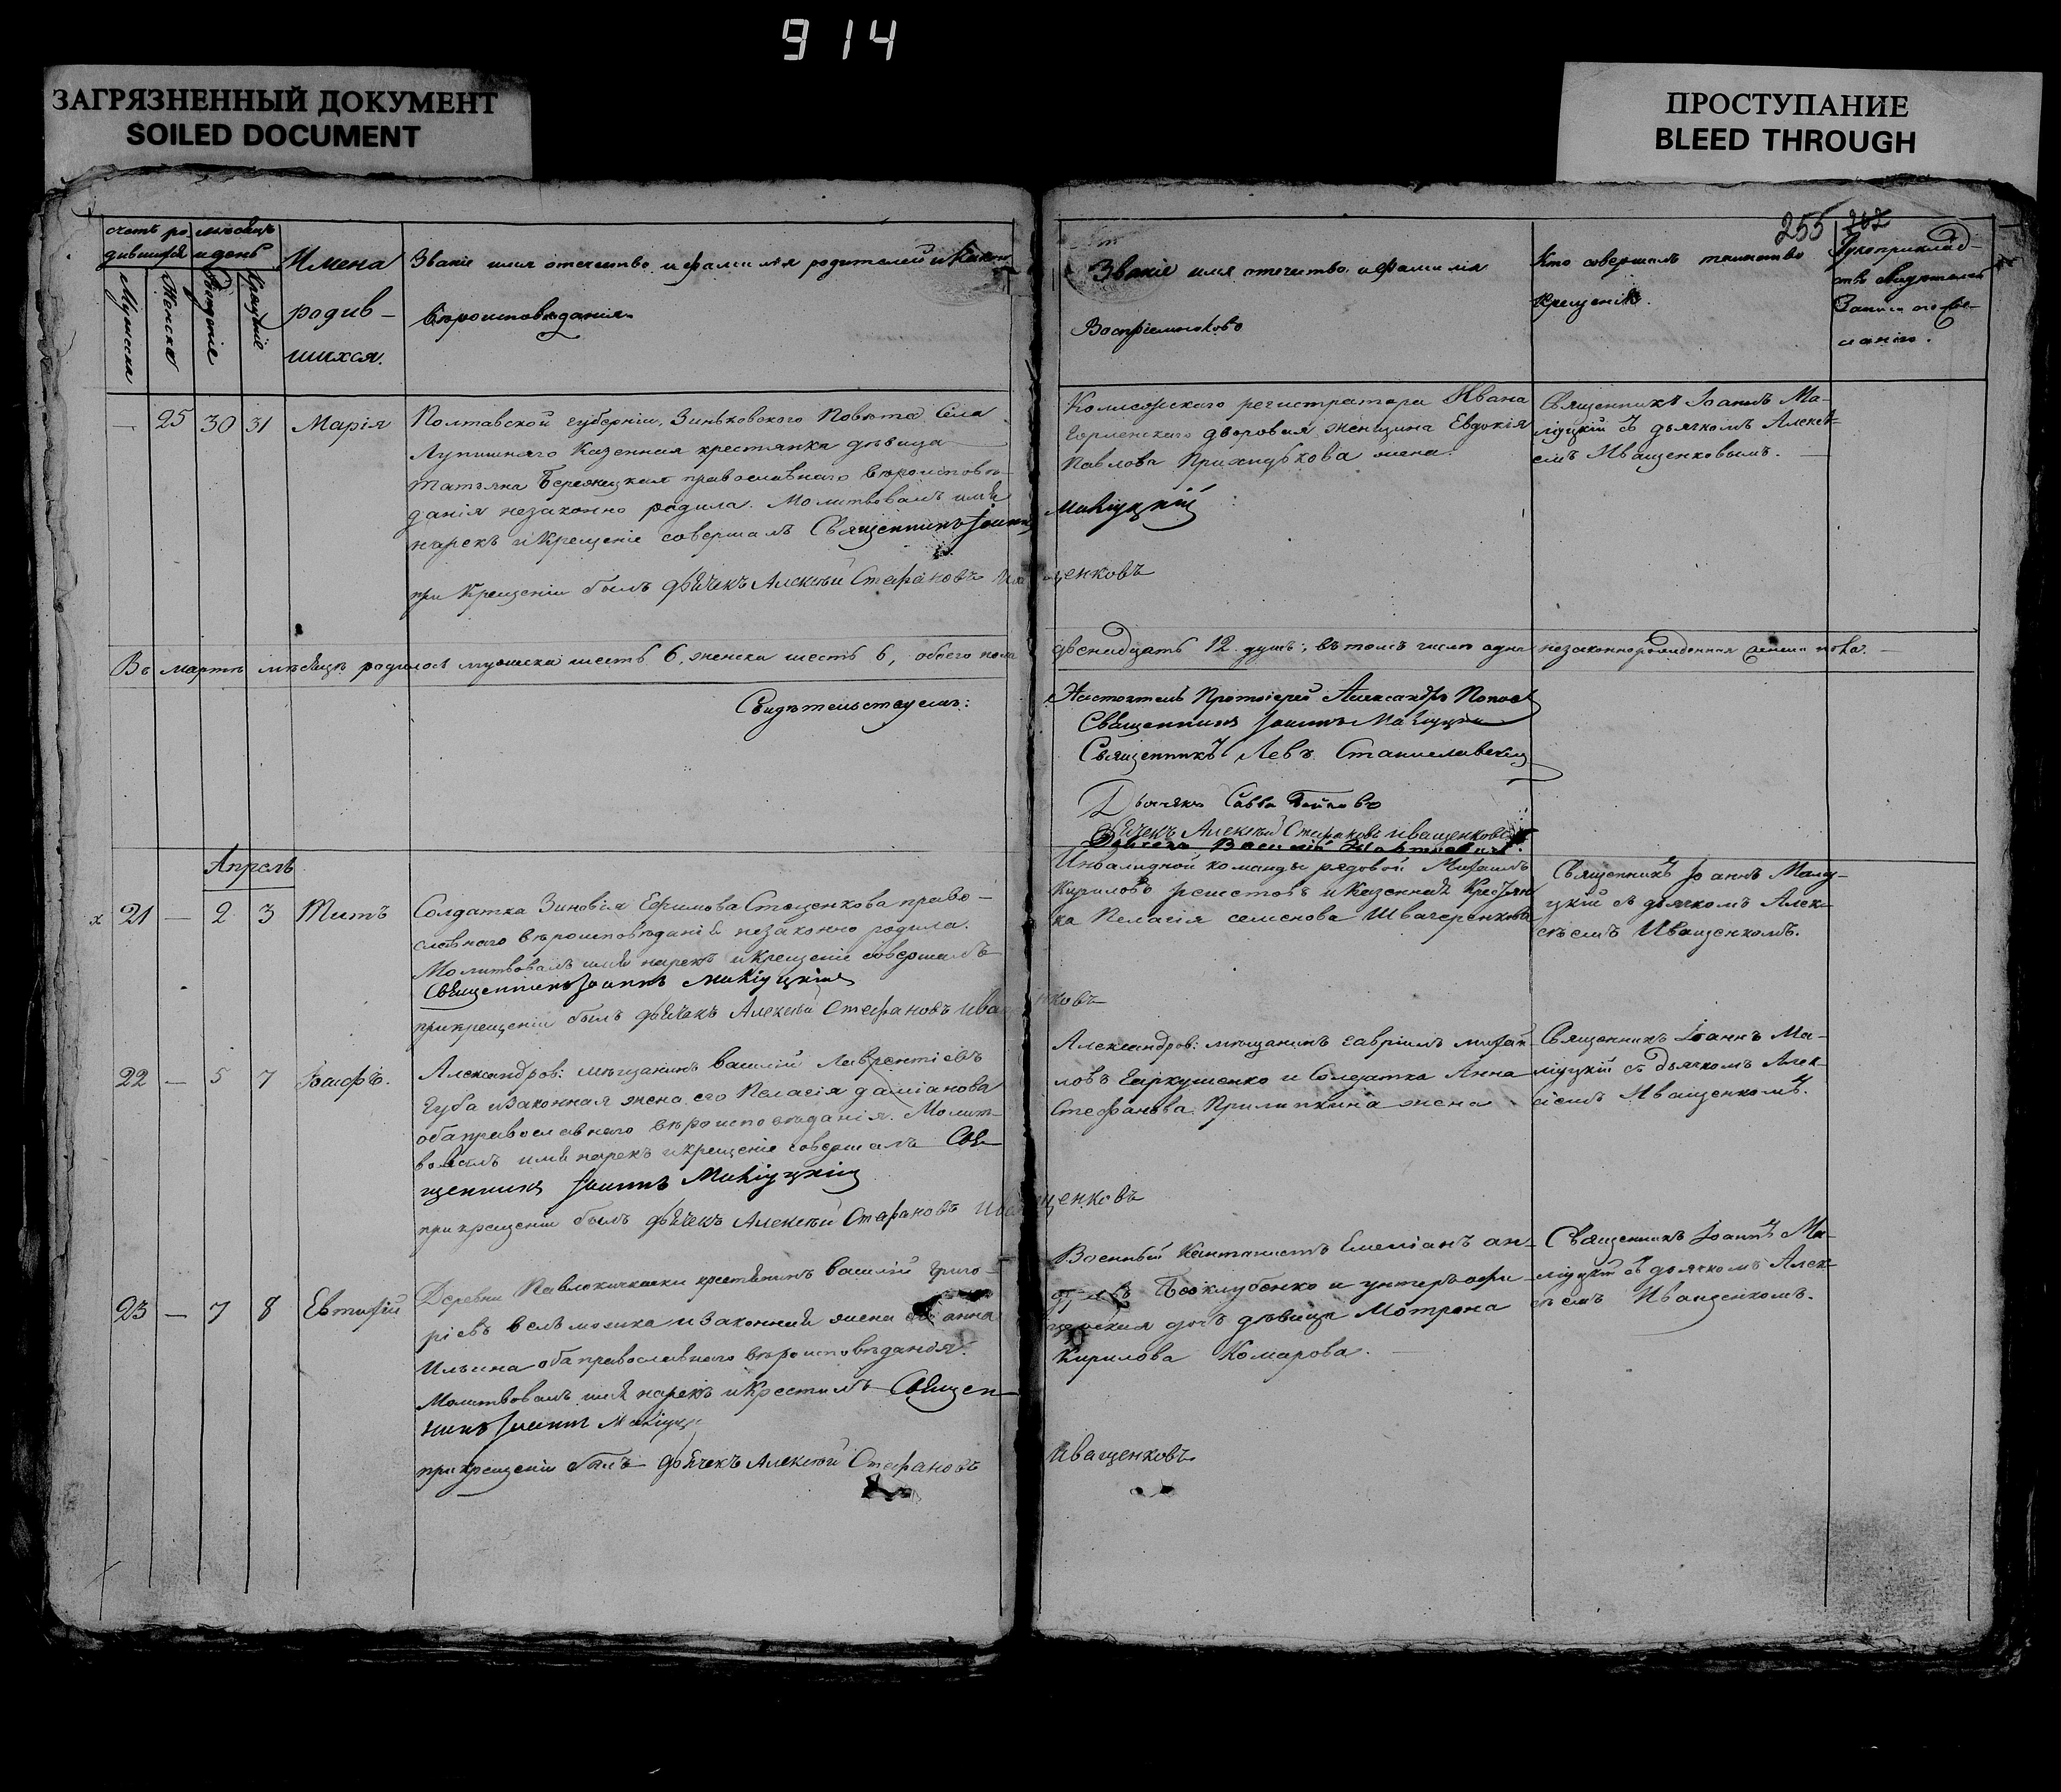 914
ЗАГРЯЗНЕННЫЙ ДОКУМЕНТ
SOILED DOCUMENT
ПРОСТУПАНИЕ
BLEED THROUGH
255 262
счетъ ро- мѣсяцъ
дившихся и день
Мужеска
Женска
Рожденіе
Крещеніе
Имена
родив-
шихся.
Званіе имя отечество и фамилія родителей и какого
вѣроисповѣданія
Званіе имя отечество и фамилія
Воспріемниковъ
Кто совершалъ таинство
крещенія.
Рукоприклад-
ство свидѣтелей
записи по же-
ланію.
— 25 30 31 Марія
Полтавской губерніи, Зиньковского Повѣта Села
Лупишнаго Казенная крестянка дѣвица
Татьяна православнаго вѣроисповѣ-
данія незаконно родила. Молитвовалъ имя
нарекъ и Крещеніе совершалъ Священникъ Іоаннъ
при Крещеніи былъ дьячекъ Алексѣй Стефановъ Иващенковъ
Коллежскаго регистратора Ивана
Горленскаго дворовая женщина Евдокія
Павлова жена.
Маліуцкій
Священникъ Іоаннъ Ма-
ліуцкій съ дьячкомъ Алексѣ-
емъ Иващенковымъ.
Въ мартѣ мѣсяцѣ родилось мужеска шесть 6, женска шесть 6, обоего пола двенадцать 12 душъ; въ томъ числѣ одна незаконнорожденная женска пола.
Свидѣтельствуемъ:
Настоятель Протоіерей Александръ Поповъ
Священникъ Іоаннъ Маліуцкій
Священникъ Левъ Станиславскій
Дьячекъ Савва
Дьячекъ Алексѣй Стефановъ Иващенковъ
Василій
Апрель
21 — 2 3 Титъ
Солдатка Зиновія Ефимова Стеценкова право-
славнаго вѣроисповѣданія незаконно родила.
Молитвовалъ имя нарекъ и крещеніе совершалъ
Священникъ Іоаннъ Маліуцкій
при крещеніи былъ дьячекъ Алексѣй Стефановъ Иващенковъ
Инвалидной команды рядовой Михаилъ
Кириловъ Решетовъ и Казенная Крестьян
ка Пелагія Семенова Швачеренкова
Священникъ Іоаннъ Маліу-
цкій съ дьячкомъ Алек-
сѣемъ Иващенкомъ.
22 — 5 7 Іосифъ.
Александров: мѣщанинъ Василій Лаврентіевъ
Губа и законная жена его Пелагія Даміанова
оба православнаго вѣроисповѣданія. Молит-
вовалъ имя нарекъ и крещеніе совершалъ Свя-
щенникъ Іоаннъ Маліуцкій
при крещеніи былъ дьячекъ Алексѣй Стефановъ Иващенковъ
Александров: мѣщанинъ Гавріилъ Михай-
ловъ Гаркушенко и Солдатка Анна
Стефанова Прилипкина жена
Священникъ Іоаннъ Ма-
ліуцкій съ дьячкомъ Алек-
сіемъ Иващенкомъ.
23 — 7 8 Евтихій
Деревни Павлокичкаски крестянинъ Василій Григо-
ріевъ и законная жена его Анна
Ильина оба православнаго вѣроисповѣданія.
Молитвовалъ имя нарекъ и Крестилъ Священ-
никъ Іоаннъ Маліуцкій
при крещеніи былъ дьячекъ Алексѣй Стефановъ
Иващенковъ
Военный Кантонистъ Емеліанъ Ан-
и унтеръ офи-
церская дочь дѣвица Мотрона
Кирилова Комарова.
Священникъ Іоаннъ Ма-
ліуцкій съ дьячкомъ Алек-
сѣемъ Иващенкомъ.